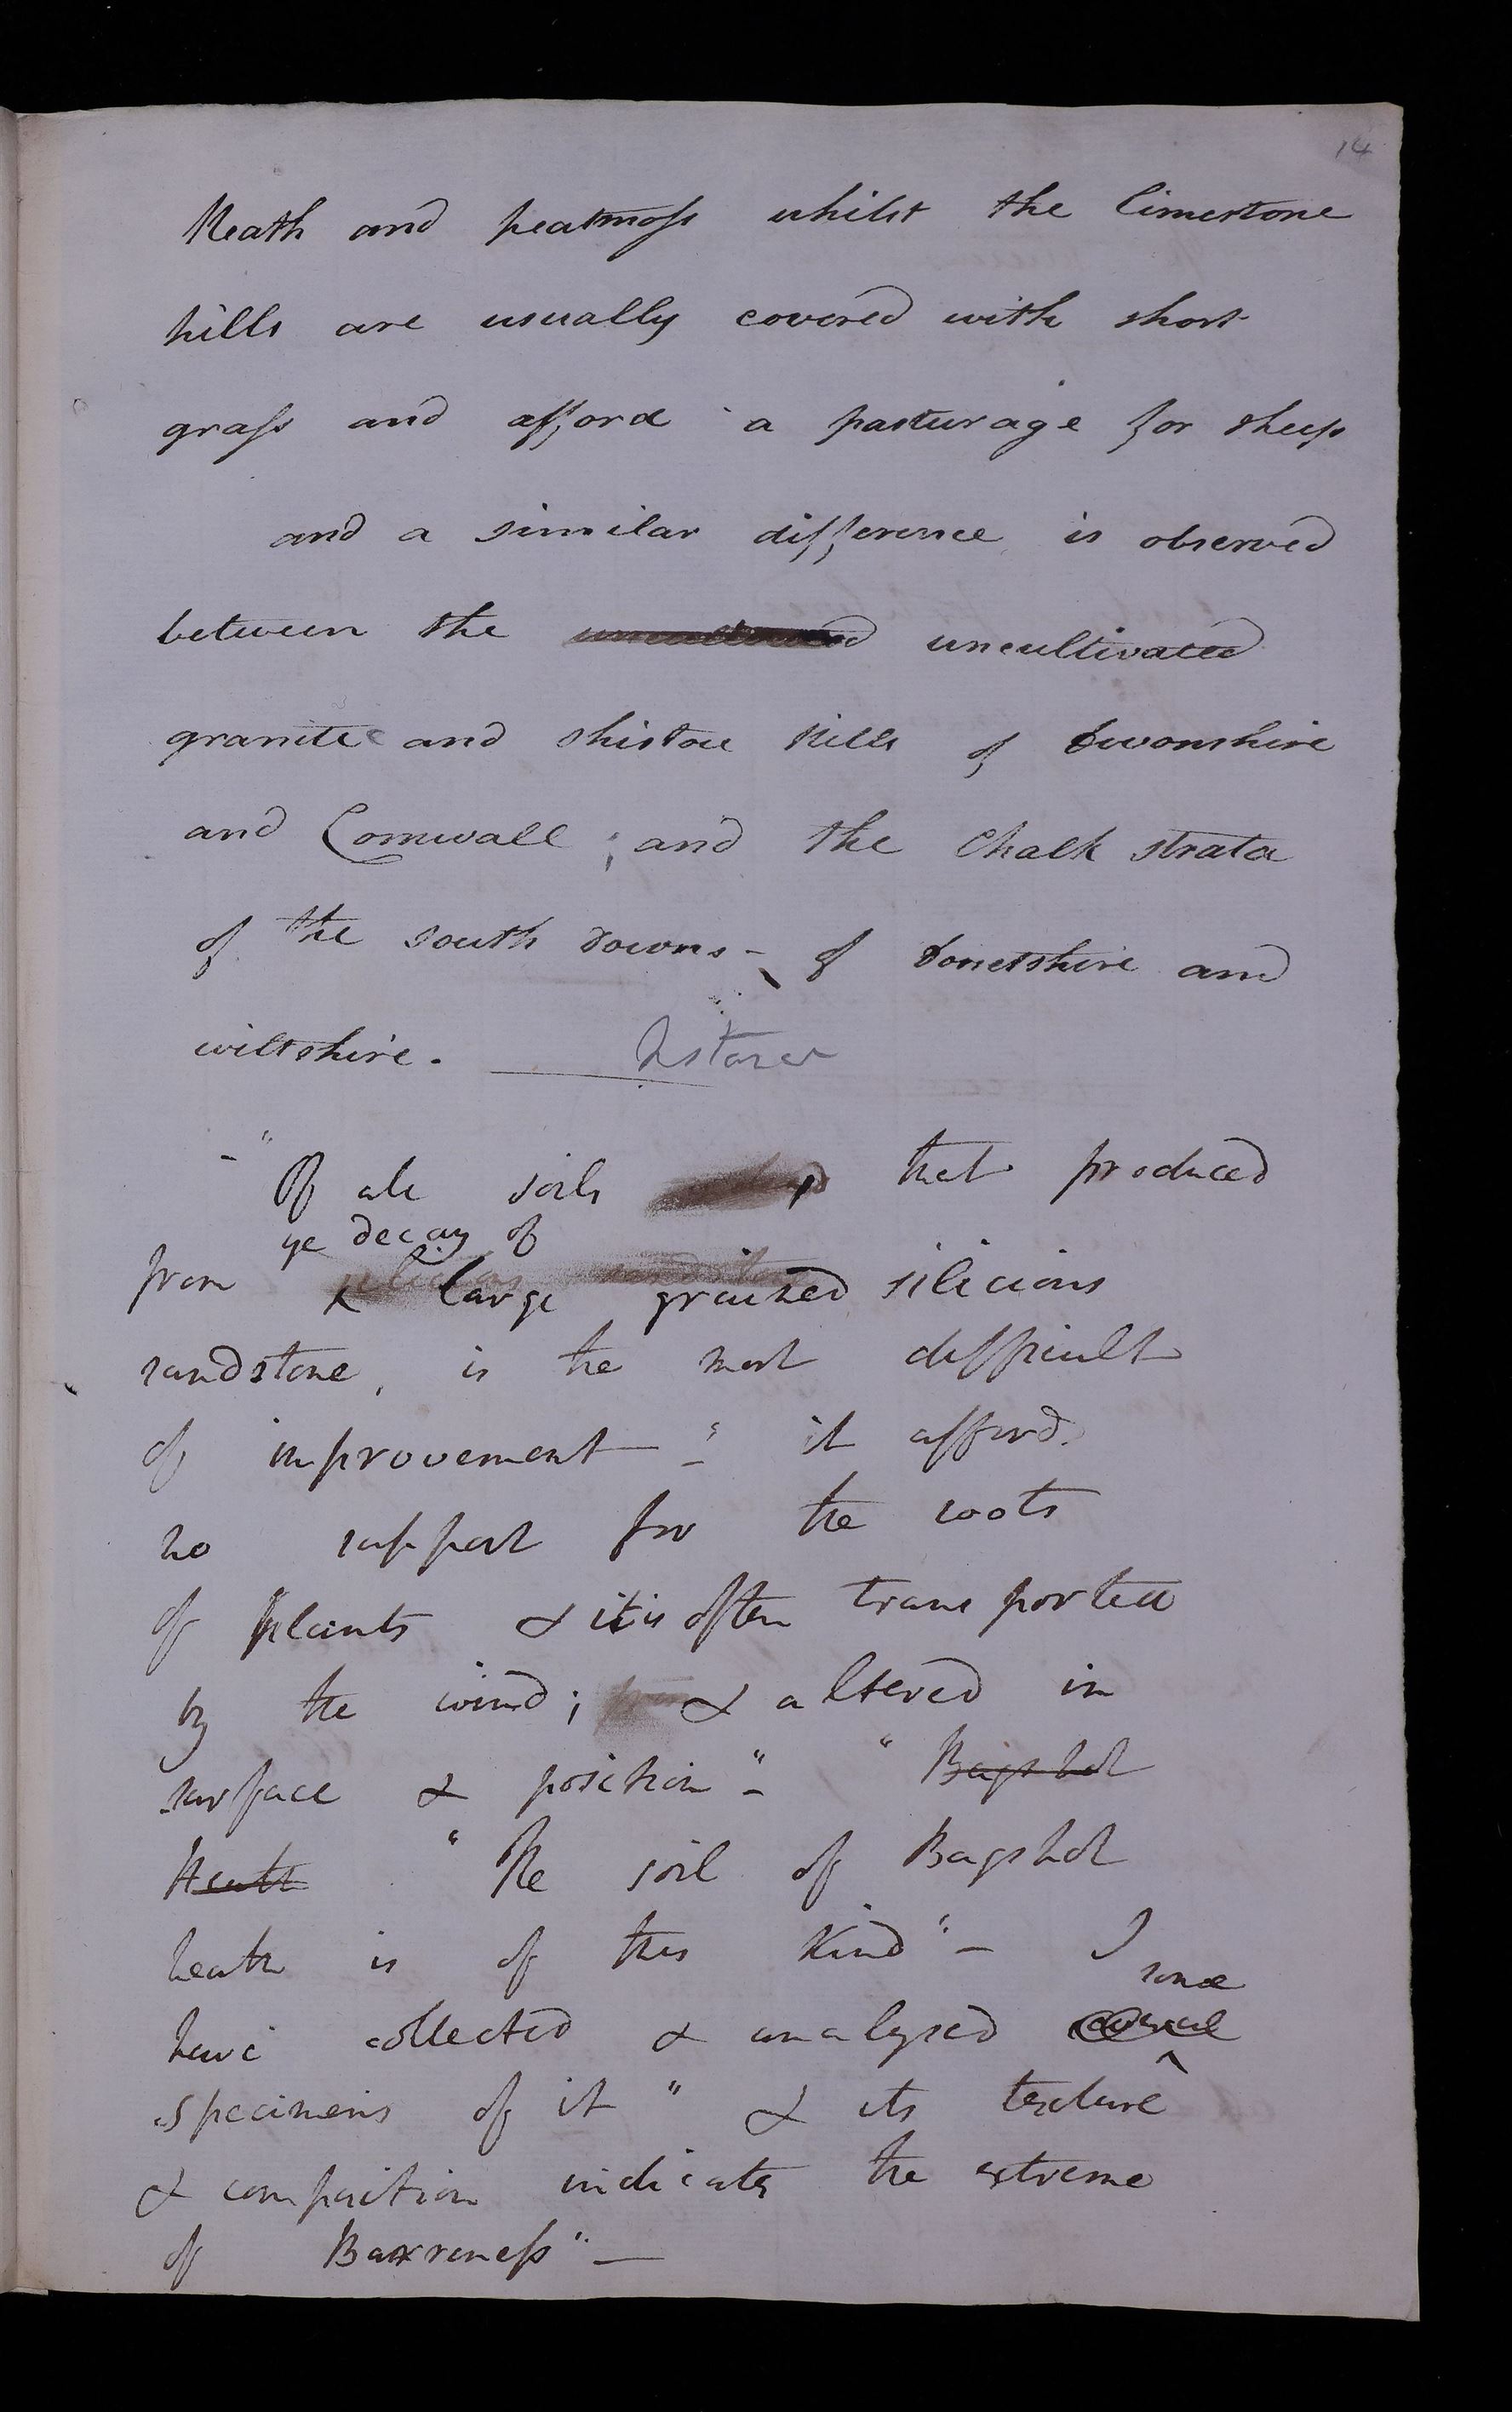 14
Heath and peatmoss whilst the limestone
hills are usually covered with short
grass and afford a pasturage for sheep
and a similar difference is observed
between the uncultivated uncultivated
granite and shistose hills of Devonshire
and Cornwall ; and the Chalk strata
of the south downs - of Dorsetshire and
wiltshire.
-" Of all soils that produced
ye decay of
from large grained silicious
sandstone, is the most difficult
of improvement -" it affords
no support for the roots
of plants & it is often transported
by the wind; & altered in
surface & position" - " Bagshot
Heath " The soil of Bagshot
heath is of this kind" - I
some
have collected & analysed several
specimens of it " & its texture
& composition indicates the extreme
of Barreness" —